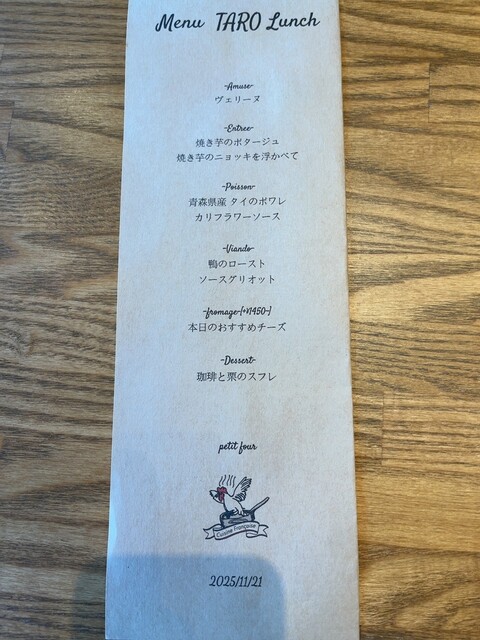 Menu TARO Lunch
-Amuse-
ヴェリーヌ
-Entree-
焼き芋のポタージュ
焼き芋のニョッキを浮かべて
-Poisson-
青森県産 タイのポワレ
カリフラワーソース
-Viande-
鴨のロースト
ソースグリオット
-fromage-[+¥1450-]
本日のおすすめチーズ
-Dessert-
珈琲と栗のスフレ
petit four
Cuisine Française
2025/11/21